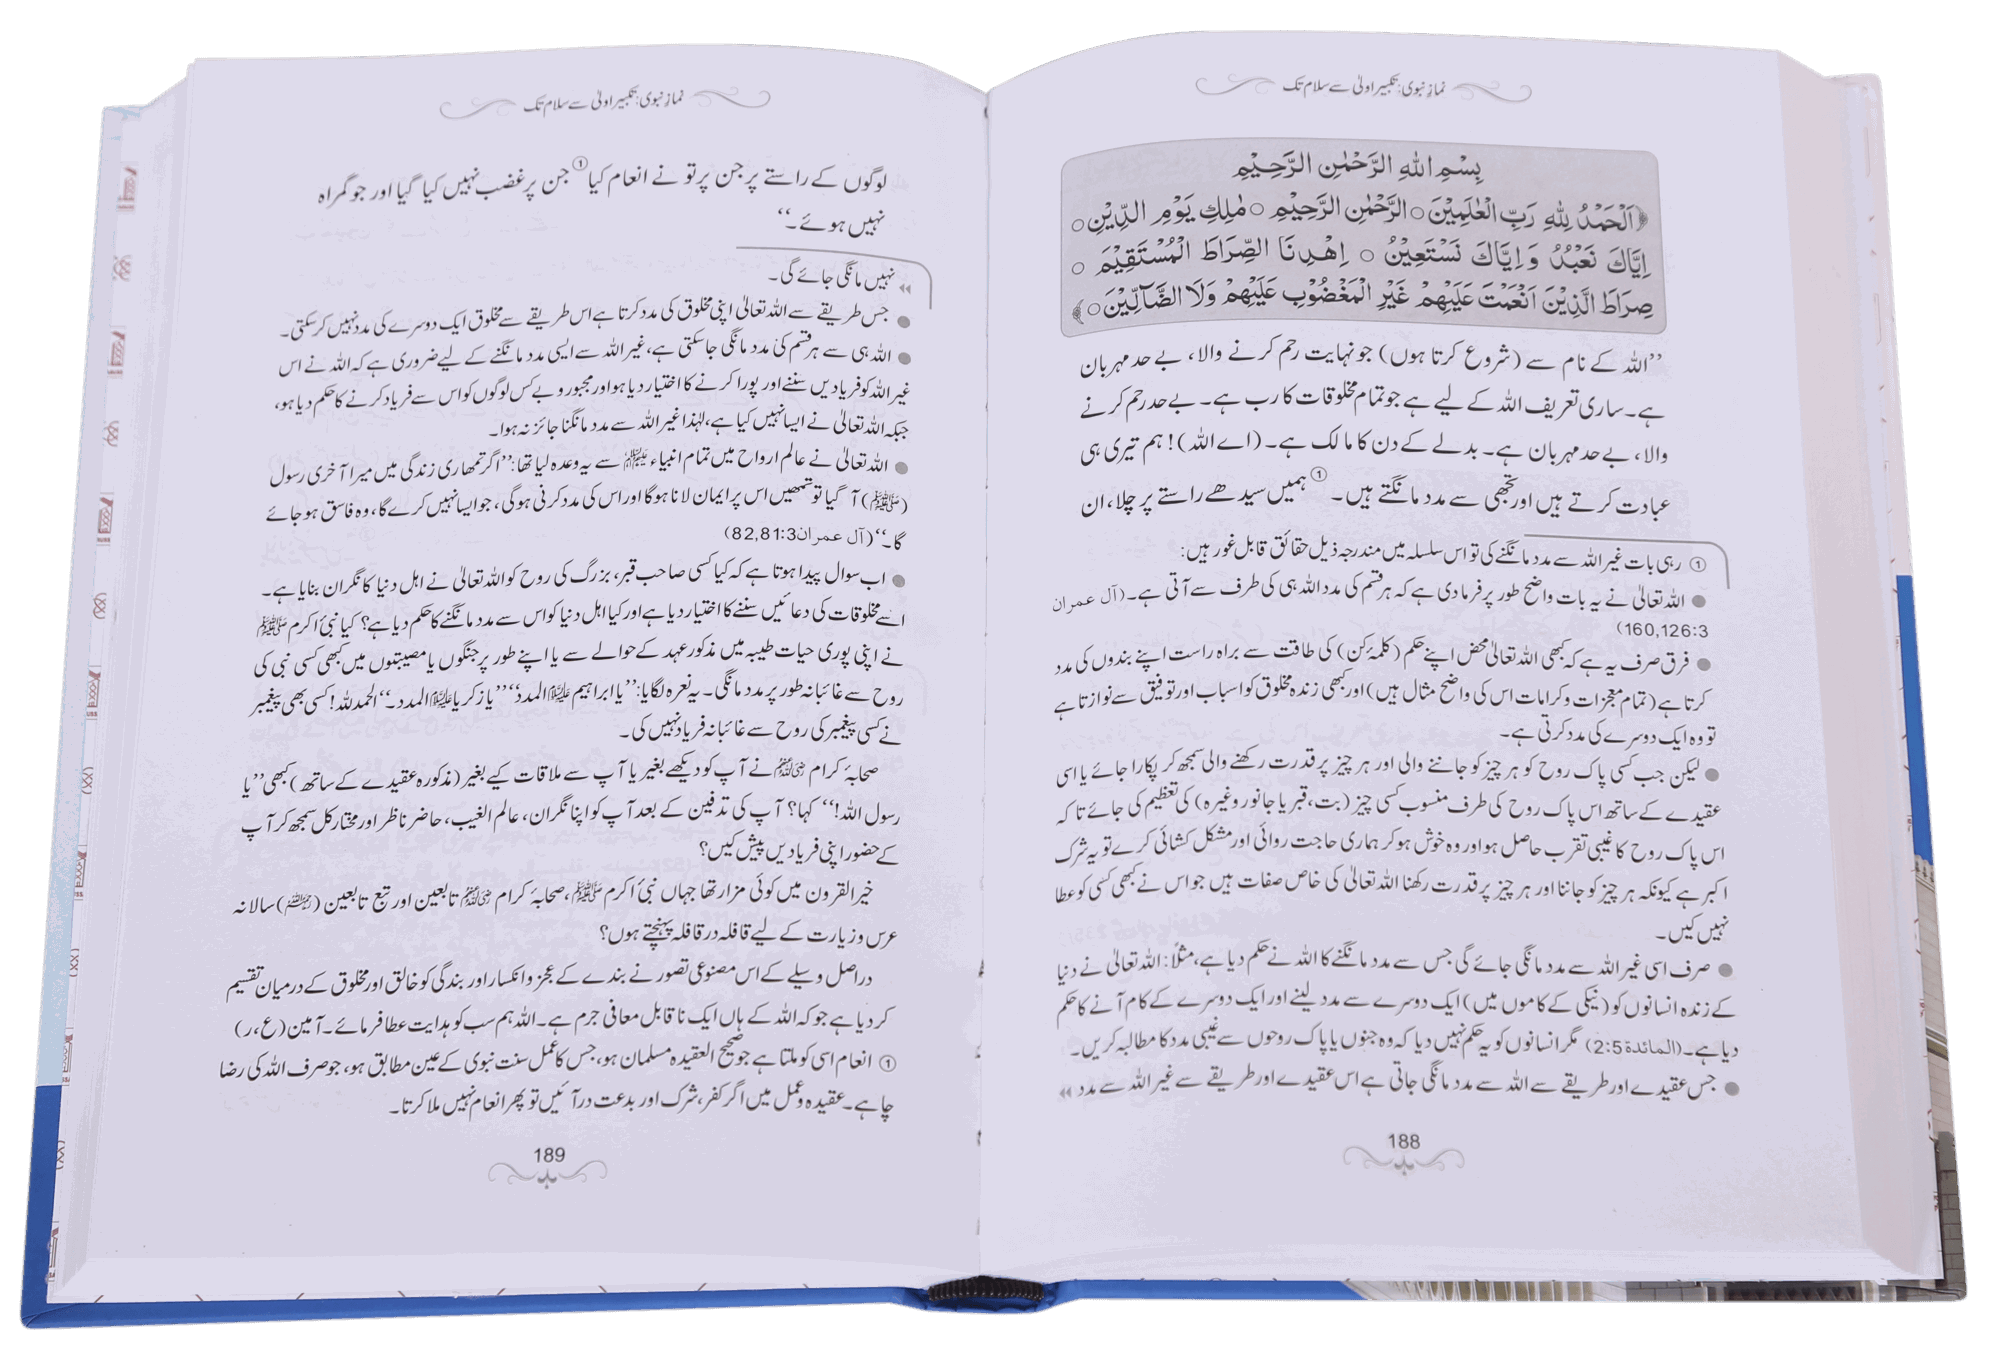 نمازِ نبوی: تکبیر اولیٰ سے سلام تک
بِسْمِ اللهِ الرَّحْمٰنِ الرَّحِيْمِ
﴿اَلْحَمْدُ لِلّٰهِ رَبِّ الْعٰلَمِيْنَ○الرَّحْمٰنِ الرَّحِيْمِ○مٰلِكِ يَوْمِ الدِّيْنِ○
اِيَّاكَ نَعْبُدُ وَاِيَّاكَ نَسْتَعِيْنُ○ اِهْدِنَا الصِّرَاطَ الْمُسْتَقِيْمَ○
صِرَاطَ الَّذِيْنَ اَنْعَمْتَ عَلَيْهِمْ غَيْرِ الْمَغْضُوْبِ عَلَيْهِمْ وَلَا الضَّآلِّيْنَ○﴾
”اللہ کے نام سے (شروع کرتا ہوں) جو نہایت رحم کرنے والا، بے حد مہربان
ہے۔ ساری تعریف اللہ کے لیے ہے جو تمام مخلوقات کا رب ہے۔ بے حد رحم کرنے
والا، بے حد مہربان ہے۔ بدلے کے دن کا مالک ہے۔ (اے اللہ)! ہم تیری ہی
عبادت کرتے ہیں اور تجھی سے مدد مانگتے ہیں۔① ہمیں سیدھے راستے پر چلا، ان
① رہی بات غیر اللہ سے مدد مانگنے کی تو اس سلسلہ میں مندرجہ ذیل حقائق قابل غور ہیں:
● اللہ تعالیٰ نے یہ بات واضح طور پر فرما دی ہے کہ ہر قسم کی مدد اللہ ہی کی طرف سے آتی ہے۔ (آل عمران
160,126:3)
● فرق صرف یہ ہے کہ کبھی اللہ تعالیٰ محض اپنے حکم (کلمۂ کن) کی طاقت سے براہ راست اپنے بندوں کی مدد
کرتا ہے (تمام معجزات و کرامات اس کی واضح مثال ہیں) اور کبھی زندہ مخلوق کو اسباب اور توفیق سے نوازتا ہے
تو وہ ایک دوسرے کی مدد کرتی ہے۔
● لیکن جب کسی پاک روح کو ہر چیز کو جاننے والی اور ہر چیز پر قدرت رکھنے والی سمجھ کر پکارا جائے یا اسی
عقیدے کے ساتھ اس پاک روح کی طرف منسوب کسی چیز (بت، قبر یا جانور وغیرہ) کی تعظیم کی جائے تاکہ
اس پاک روح کا غیبی تقرب حاصل ہو اور وہ خوش ہو کر ہماری حاجت روائی اور مشکل کشائی کرے تو یہ شرک
اکبر ہے کیونکہ ہر چیز کو جاننا اور ہر چیز پر قدرت رکھنا اللہ تعالیٰ کی خاص صفات ہیں جو اس نے کبھی کسی کو عطا
نہیں کیں۔
● صرف اسی غیر اللہ سے مدد مانگی جائے گی جس سے مدد مانگنے کا اللہ نے حکم دیا ہے، مثلاً: اللہ تعالیٰ نے دنیا
کے زندہ انسانوں کو (نیکی کے کاموں میں) ایک دوسرے سے مدد لینے اور ایک دوسرے کے کام آنے کا حکم
دیا ہے۔ (المائدة 2:5) مگر انسانوں کو یہ حکم نہیں دیا کہ وہ جنوں یا پاک روحوں سے غیبی مدد کا مطالبہ کریں۔
● جس عقیدے اور طریقے سے اللہ سے مدد مانگی جاتی ہے اس عقیدے اور طریقے سے غیر اللہ سے مدد
188
نمازِ نبوی: تکبیر اولیٰ سے سلام تک
لوگوں کے راستے پر جن پر تو نے انعام کیا① جن پر غضب نہیں کیا گیا اور جو گمراہ
نہیں ہوئے۔“
نہیں مانگی جائے گی۔
● جس طریقے سے اللہ تعالیٰ اپنی مخلوق کی مدد کرتا ہے اس طریقے سے مخلوق ایک دوسرے کی مدد نہیں کر سکتی۔
● اللہ ہی سے ہر قسم کی مدد مانگی جاسکتی ہے، غیر اللہ سے ایسی مدد مانگنے کے لیے ضروری ہے کہ اللہ نے اس
غیر اللہ کو فریادیں سننے اور پورا کرنے کا اختیار دیا ہو اور مجبور و بے کس لوگوں کو اس سے فریاد کرنے کا حکم دیا ہو،
جبکہ اللہ تعالیٰ نے ایسا نہیں کیا ہے، لہٰذا غیر اللہ سے مدد مانگنا جائز نہ ہوا۔
● اللہ تعالیٰ نے عالم ارواح میں تمام انبیاء علیہم السلام سے یہ وعدہ لیا تھا: ”اگر تمھاری زندگی میں میرا آخری رسول
(ﷺ) آ گیا تو تمھیں اس پر ایمان لانا ہو گا اور اس کی مدد کرنی ہو گی، جو ایسا نہیں کرے گا، وہ فاسق ہو جائے
گا۔“ (آل عمران 82,81:3)
● اب سوال پیدا ہوتا ہے کہ کیا کسی صاحب قبر، بزرگ کی روح کو اللہ تعالیٰ نے اہل دنیا کا نگران بنایا ہے۔
اسے مخلوقات کی دعائیں سننے کا اختیار دیا ہے اور کیا اہل دنیا کو اس سے مدد مانگنے کا حکم دیا ہے؟ کیا نبیٔ اکرم ﷺ
نے اپنی پوری حیات طیبہ میں مذکور عہد کے حوالے سے یا اپنے طور پر جنگوں یا مصیبتوں میں کبھی کسی نبی کی
روح سے غائبانہ طور پر مدد مانگی۔ یہ نعرہ لگایا: ”یا ابراہیم علیہ السلام المدد“ ”یا زکریا علیہ السلام المدد۔“ الحمد للہ! کسی بھی پیغمبر
نے کسی پیغمبر کی روح سے غائبانہ فریاد نہیں کی۔
صحابۂ کرام رضی اللہ عنہم نے آپ کو دیکھے بغیر یا آپ سے ملاقات کیے بغیر (مذکورہ عقیدے کے ساتھ) کبھی ”یا
رسول اللہ!“ کہا؟ آپ کی تدفین کے بعد آپ کو اپنا نگران، عالم الغیب، حاضر ناظر اور مختار کل سمجھ کر آپ
کے حضور اپنی فریادیں پیش کیں؟
خیر القرون میں کوئی مزار تھا جہاں نبیٔ اکرم ﷺ، صحابۂ کرام رضی اللہ عنہم تابعین اور تبع تابعین (رحمہم اللہ) سالانہ
عرس و زیارت کے لیے قافلہ در قافلہ پہنچتے ہوں؟
دراصل وسیلے کے اس مصنوعی تصور نے بندے کے عجز و انکسار اور بندگی کو خالق اور مخلوق کے درمیان تقسیم
کر دیا ہے جو کہ اللہ کے ہاں ایک ناقابل معافی جرم ہے۔ اللہ ہم سب کو ہدایت عطا فرمائے۔ آمین (ع،ر)
① انعام اسی کو ملتا ہے جو صحیح العقیدہ مسلمان ہو، جس کا عمل سنت نبوی کے عین مطابق ہو، جو صرف اللہ کی رضا
چاہے۔ عقیدہ و عمل میں اگر کفر، شرک اور بدعت در آئیں تو پھر انعام نہیں ملا کرتا۔
189